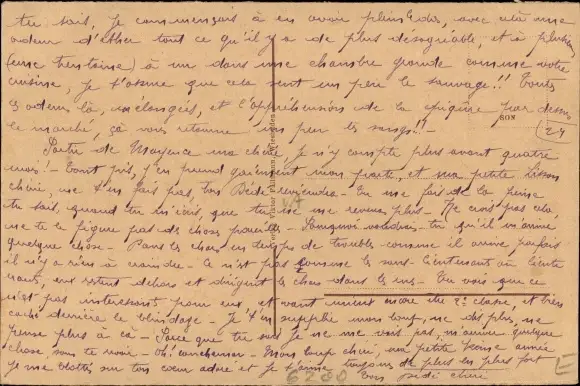 tu sais, je commençais à en avoir plein le dos, avec cela une
odeur d'éther tout ce qu'il y a de plus désagréable, et à plusieurs
(une trentaine) à un dans une chambre grande comme votre
cuisine, je t'assure que cela sent un peu le sauvage!! Toutes
ces odeurs là, mélangées, et l'appréhension de la piqûre par dessus
le marché, çà vous retourne un peu les sangs!!
SON
24
Partir de Mayence ma chérie, je n'y compte plus avant quatre
mois. Tant pis, j'en prend gaiement mon parti, et ma petite
chérie, ne t'en fais pas, ton Dédé reviendra. Tu me fais de la peine
tu sais, quand tu m'écris, que tu ne me reverras plus. Ne crois pas cela,
ne te figure pas de choses pareilles. Pourquoi voudrais-tu qu'il m'arrive
quelque chose. Dans les chars en temps de troubles comme il arrive parfois
il n'y a rien à craindre. Ce n'est pas comme les sous-lieutenants ou lieute
nants, eux restent dehors et dirigent les chars dans les rues. Tu vois que ce
n'est pas intéressant pour eux et vaut mieux être 2e classe, et bien
caché derrière le blindage. Je t'en supplie mon loup, ne dis plus, ne
pense plus à çà. Parce que tu sais je ne me vois pas, m'arriver quelque
chose sans te revoir. Mon loup chéri, ma petite femme aimée
je me blottis sur ton cœur adoré et je t'aime toujours de plus en plus fort
Ton petit chéri
6200
E